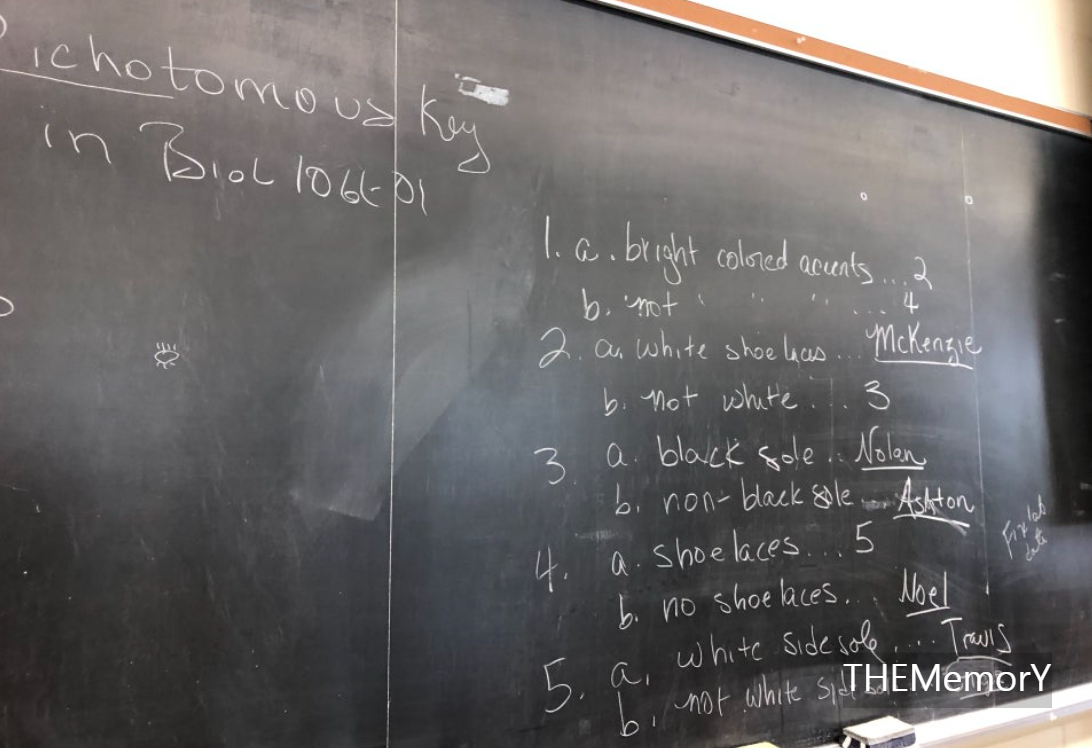 Dichotomous Key
in Biol 106L-01
1. a. bright colored accents... 2
b. not " " " ... 4
2. a. white shoelaces... McKenzie
b. not white... 3
3 a. black sole.. Nolan
b. non-black sole... Ashton
4. a. shoelaces... 5
b. no shoelaces... Noel
5. a. white sidesole... Travis
b. not white side
Fix lab
data
THEMemorY